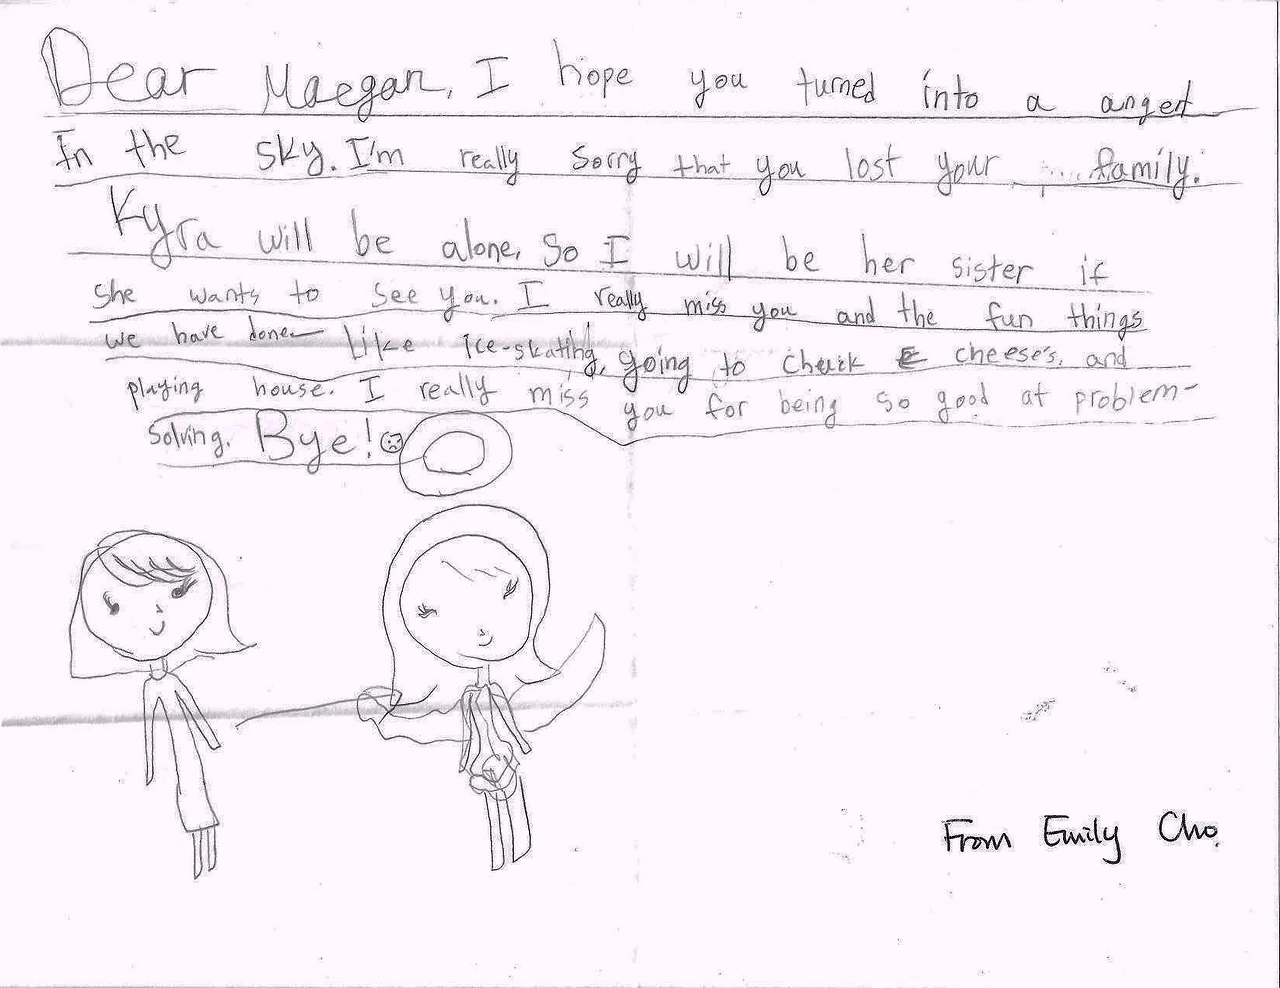 Dear Maegan, I hope you turned into a angerl
In the sky. I'm really sorry that you lost your family.
Kyra will be alone, So I will be her sister if
she wants to see you. I really miss you and the fun things
we have done Like Ice-skating, going to Chuck E cheese's, and
playing house. I really miss you for being so good at problem-
solving. Bye!
From Emily Cho